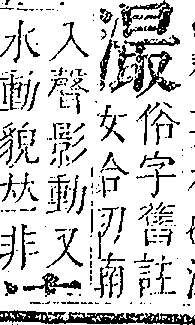 俗字舊註
女合切南
入聲影動又
水動貌𠀤非